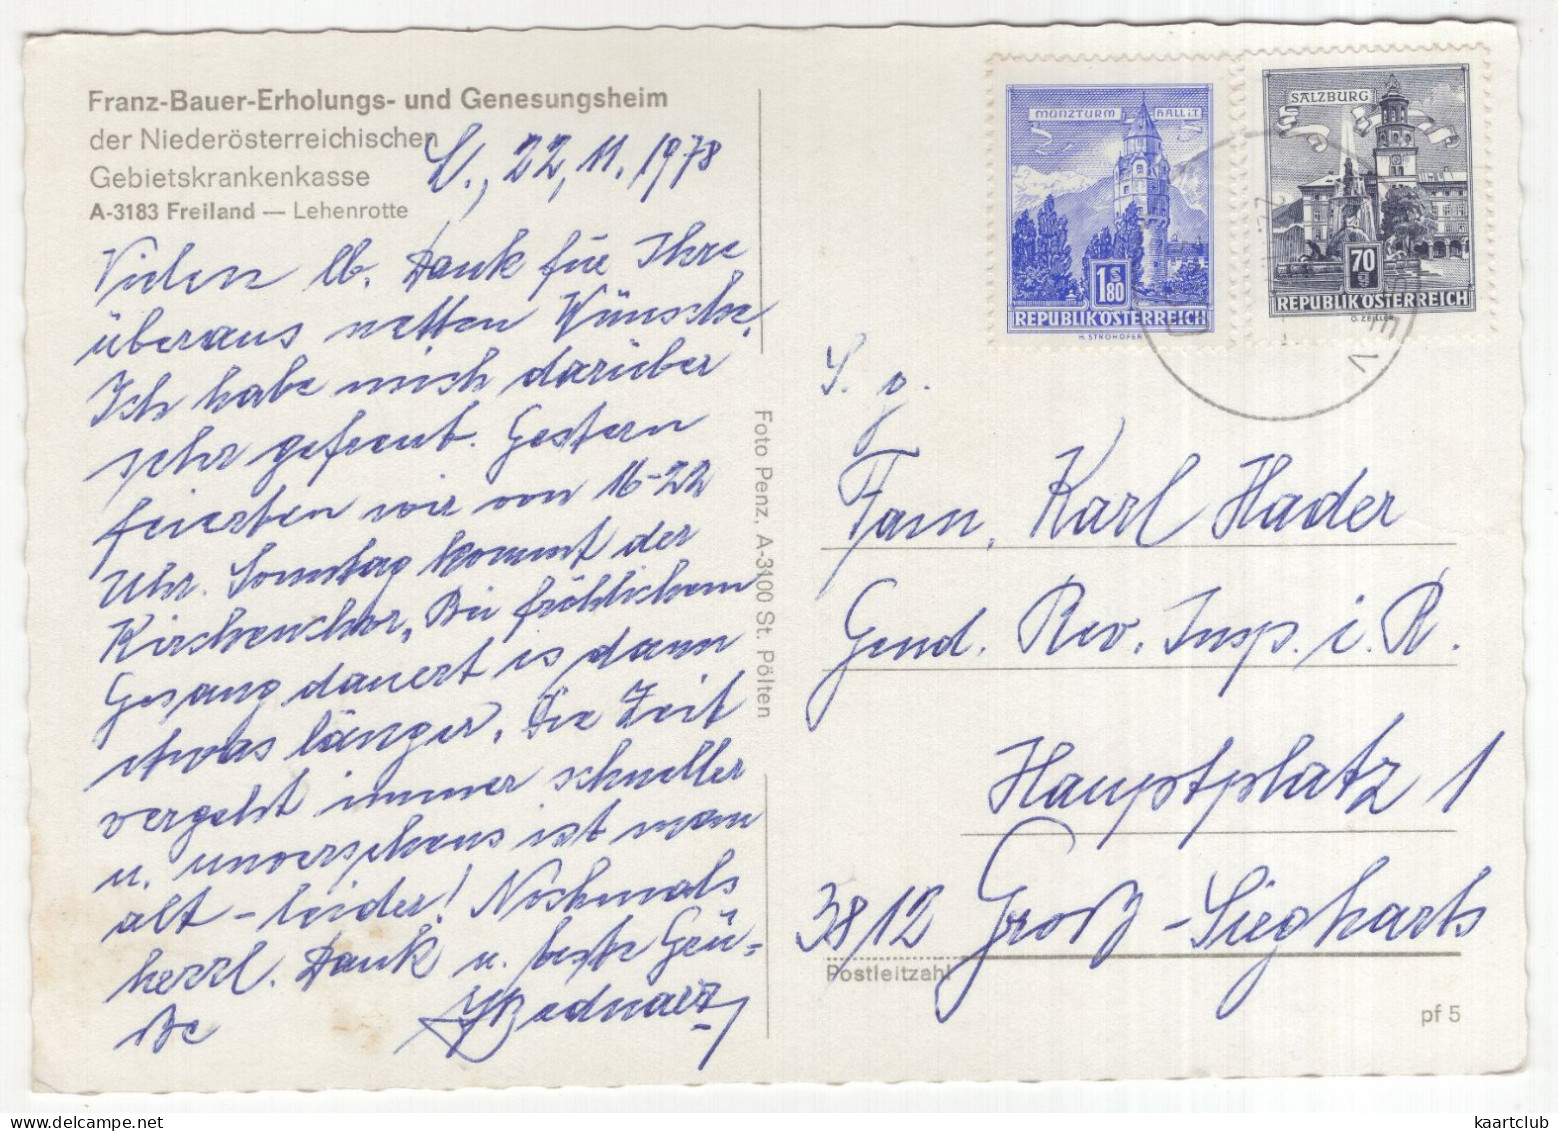 Franz-Bauer-Erholungs- und Genesungsheim
der Niederösterreichischen
Gebietskrankenkasse
A-3183 Freiland — Lehenrotte
22.11.1978
Vielen lb. Dank für Ihre
überaus netten Wünsche.
Ich habe mich darüber
sehr gefreut. Gestern
feierten wir von 16-22
Uhr. Sonntag kommt der
Kirchenchor. Bei fröhlichem
Gesang dauert es dann
etwas länger. Die Zeit
vergeht immer schneller
u. unversehens ist man
alt - leider! Nochmals
herzl. Dank u. beste Grü-
ße
Foto Penz, A-3100 St. Pölten
MÜNZTURM HALL i.T.
1 S 80
REPUBLIK ÖSTERREICH
H. STROHOFER
SALZBURG
70 g
REPUBLIK ÖSTERREICH
O. ZEILLER
S. g.
Fam. Karl Hader
Gend. Rev. Insp. i. R.
Hauptplatz 1
3812 Groß-Siegharts
Postleitzahl
pf 5
kaartclub